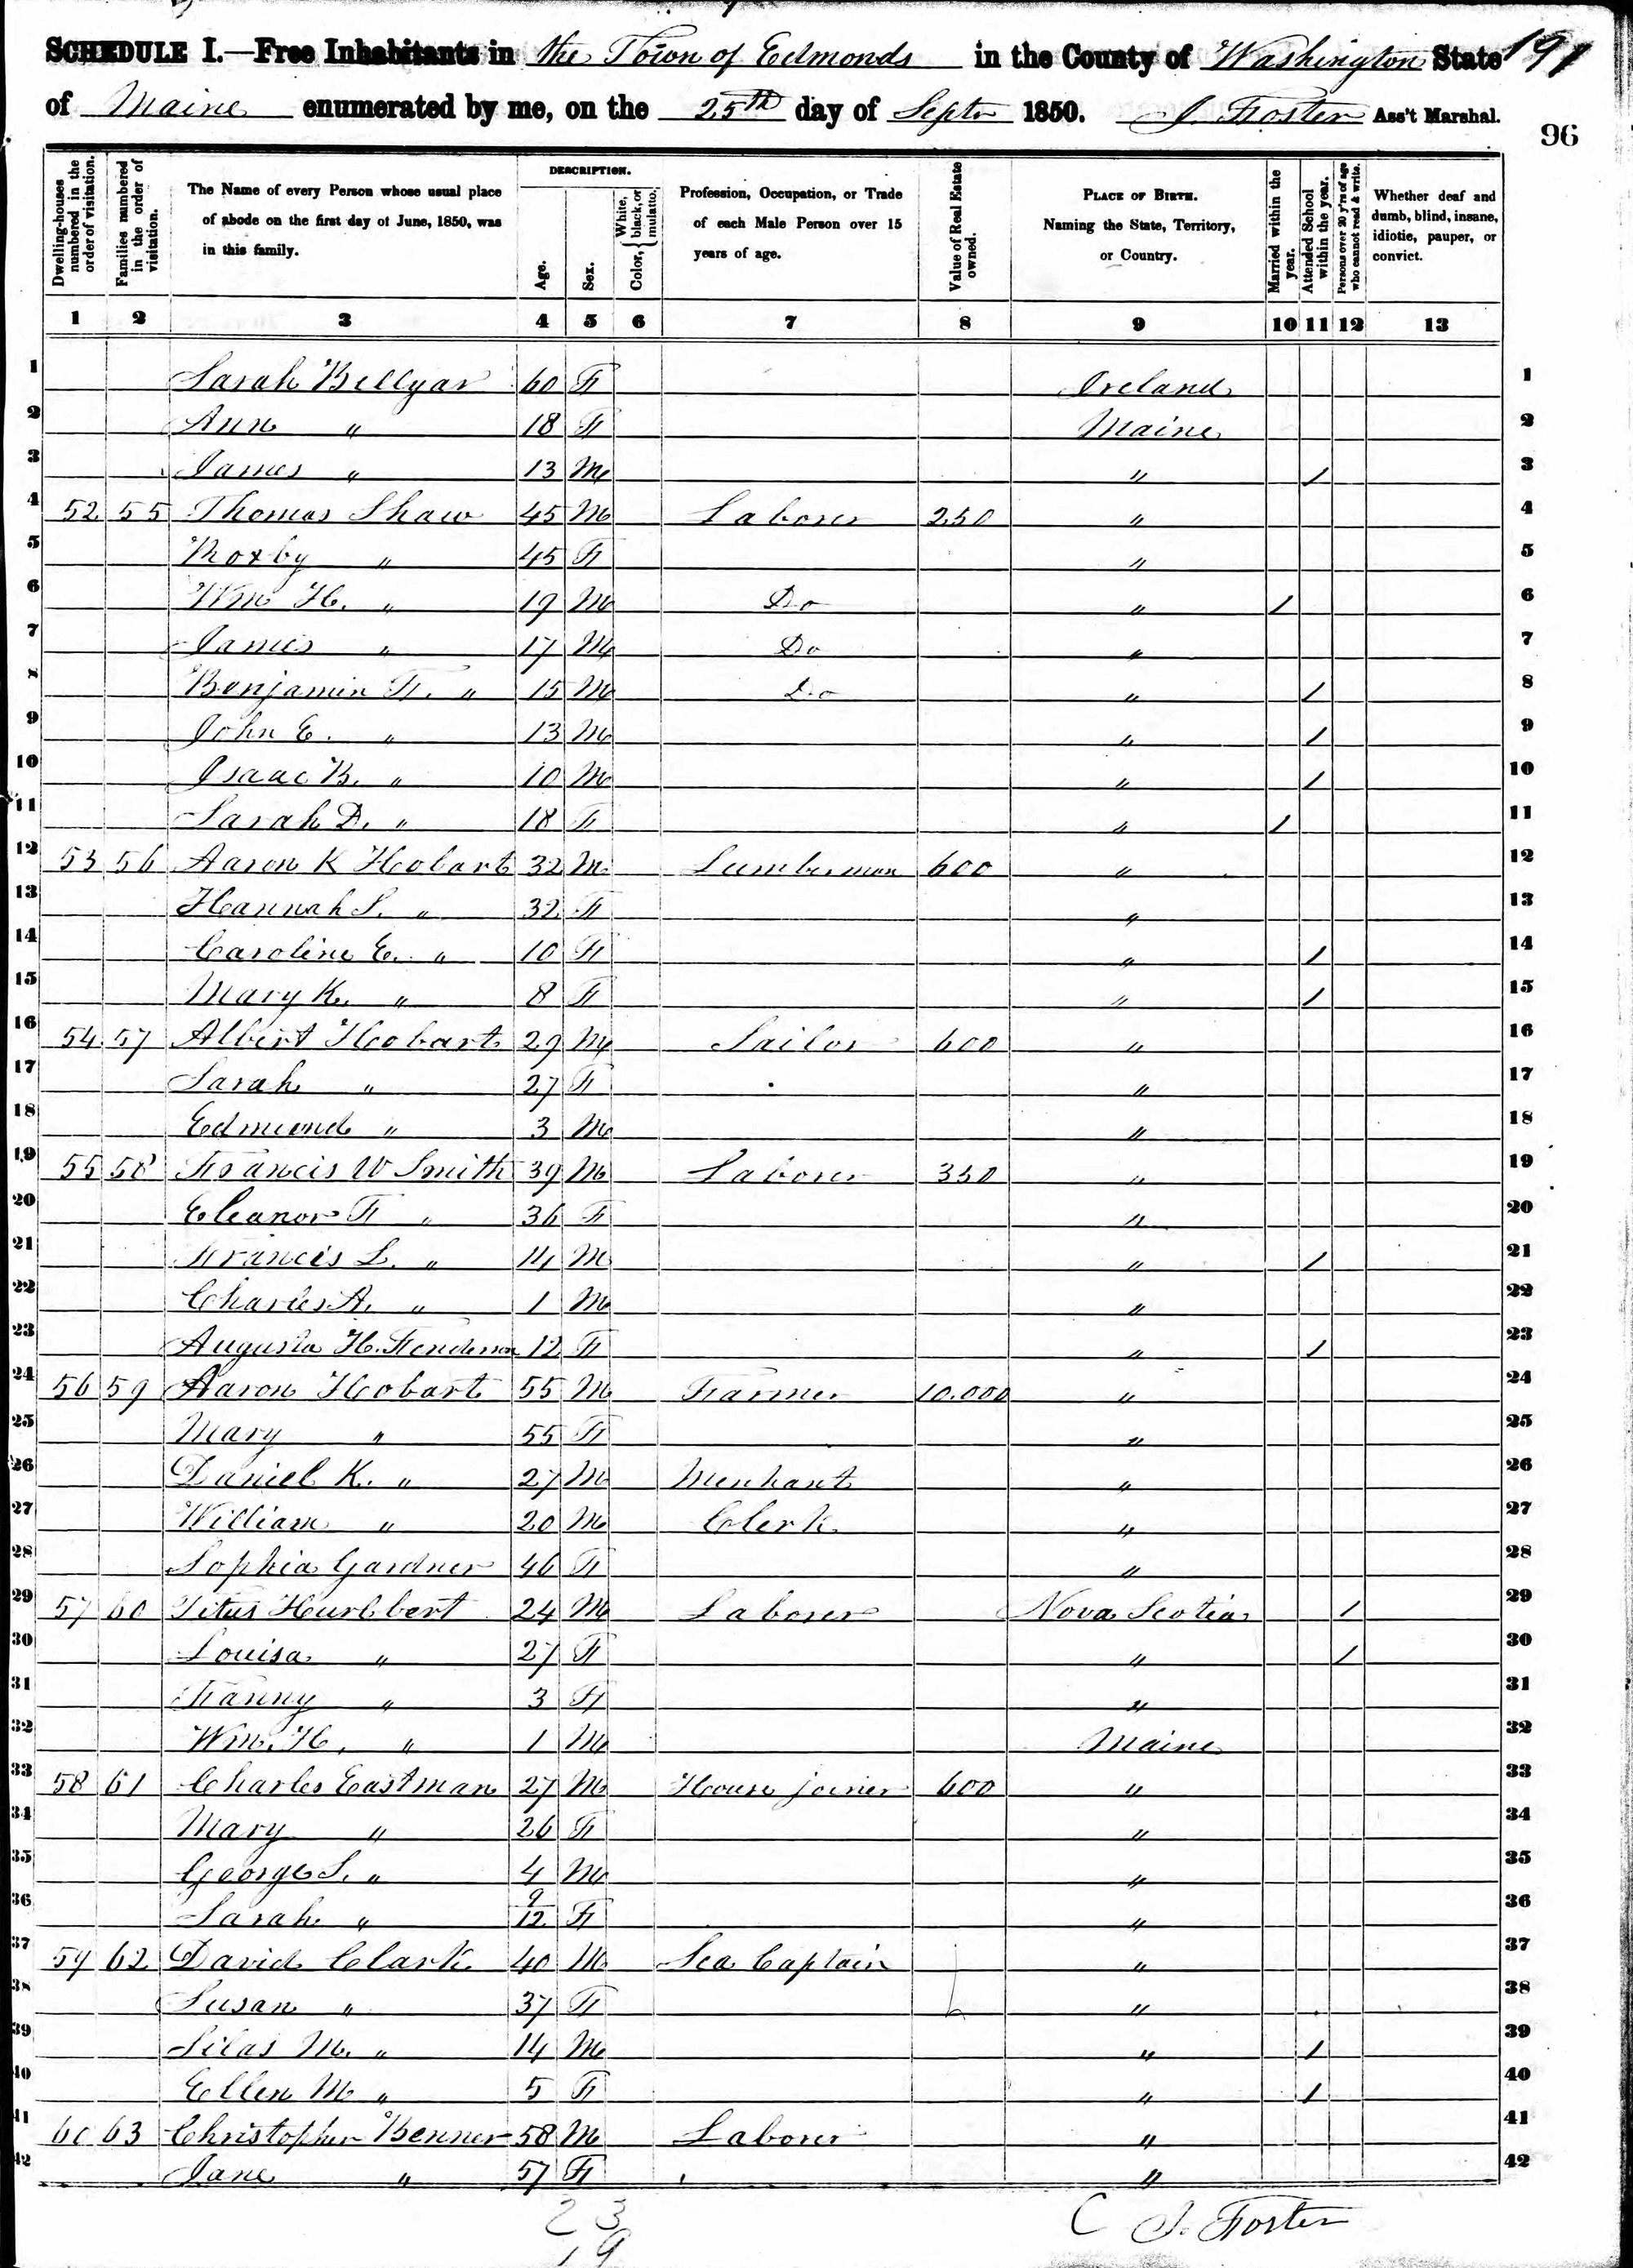 SCHEDULE I.—Free Inhabitants in the Town of Edmonds in the County of Washington State 191
of Maine enumerated by me, on the 25th day of Septr 1850. J. Foster Ass't Marshal.
96
Dwelling-houses numbered in the order of visitation.
Families numbered in the order of visitation.
The Name of every Person whose usual place of abode on the first day of June, 1850, was in this family.
DESCRIPTION.
Age.
Sex.
Color, { White, black, or mulatto.
Profession, Occupation, or Trade of each Male Person over 15 years of age.
Value of Real Estate owned.
PLACE OF BIRTH. Naming the State, Territory, or Country.
Married within the year.
Attended School within the year.
Persons over 20 y'rs of age who cannot read & write.
Whether deaf and dumb, blind, insane, idiotic, pauper, or convict.
1 2 3 4 5 6 7 8 9 10 11 12 13
1 Sarah Bellyar 60 F Ireland 1
2 Ann " 18 F Maine 2
3 James " 13 M " / 3
4 52 55 Thomas Shaw 45 M Laborer 250 " 4
5 " 45 F " 5
6 Wm H. " 19 M Do " / 6
7 James " 17 M Do " 7
8 Benjamin F. " 15 M Do " / 8
9 John E. " 13 M " / 9
10 Isaac B. " 10 M " / 10
11 Sarah D. " 18 F " / 11
12 53 56 Aaron K Hobart 32 M Lumberman 600 " 12
13 Hannah S. " 32 F " 13
14 Caroline E. " 10 F " / 14
15 Mary K. " 8 F " / 15
16 54 57 Albert Hobart 29 M Sailor 600 " 16
17 Sarah " 27 F " 17
18 Edmund " 3 M " 18
19 55 58 Francis W Smith 39 M Laborer 350 " 19
20 Eleanor F " 36 F " 20
21 Francis L. " 14 M " / 21
22 Charles A. " 1 M " 22
23 Augusta H. Fenderson 12 F " / 23
24 56 59 Aaron Hobart 55 M Farmer 10.000 " 24
25 Mary " 55 F " 25
26 Daniel K. " 27 M Merchant " 26
27 William " 20 M Clerk " 27
28 Sophia Gardner 46 F " 28
29 57 60 Titus Hurlbert 24 M Laborer Nova Scotia / 29
30 Louisa " 27 F " / 30
31 Fanny " 3 F " 31
32 Wm. H. " 1 M Maine 32
33 58 61 Charles Eastman 27 M House joiner 600 " 33
34 Mary " 26 F " 34
35 George S. " 4 M " 35
36 Sarah " 9/12 F " 36
37 59 62 David Clark 40 M Sea Captain " 37
38 Susan " 37 F " 38
39 Silas M. " 14 M " / 39
40 Ellen M " 5 F " / 40
41 60 63 Christopher Benner 58 M Laborer " 41
42 Jane " 57 F " 42
23
19
C J. Foster